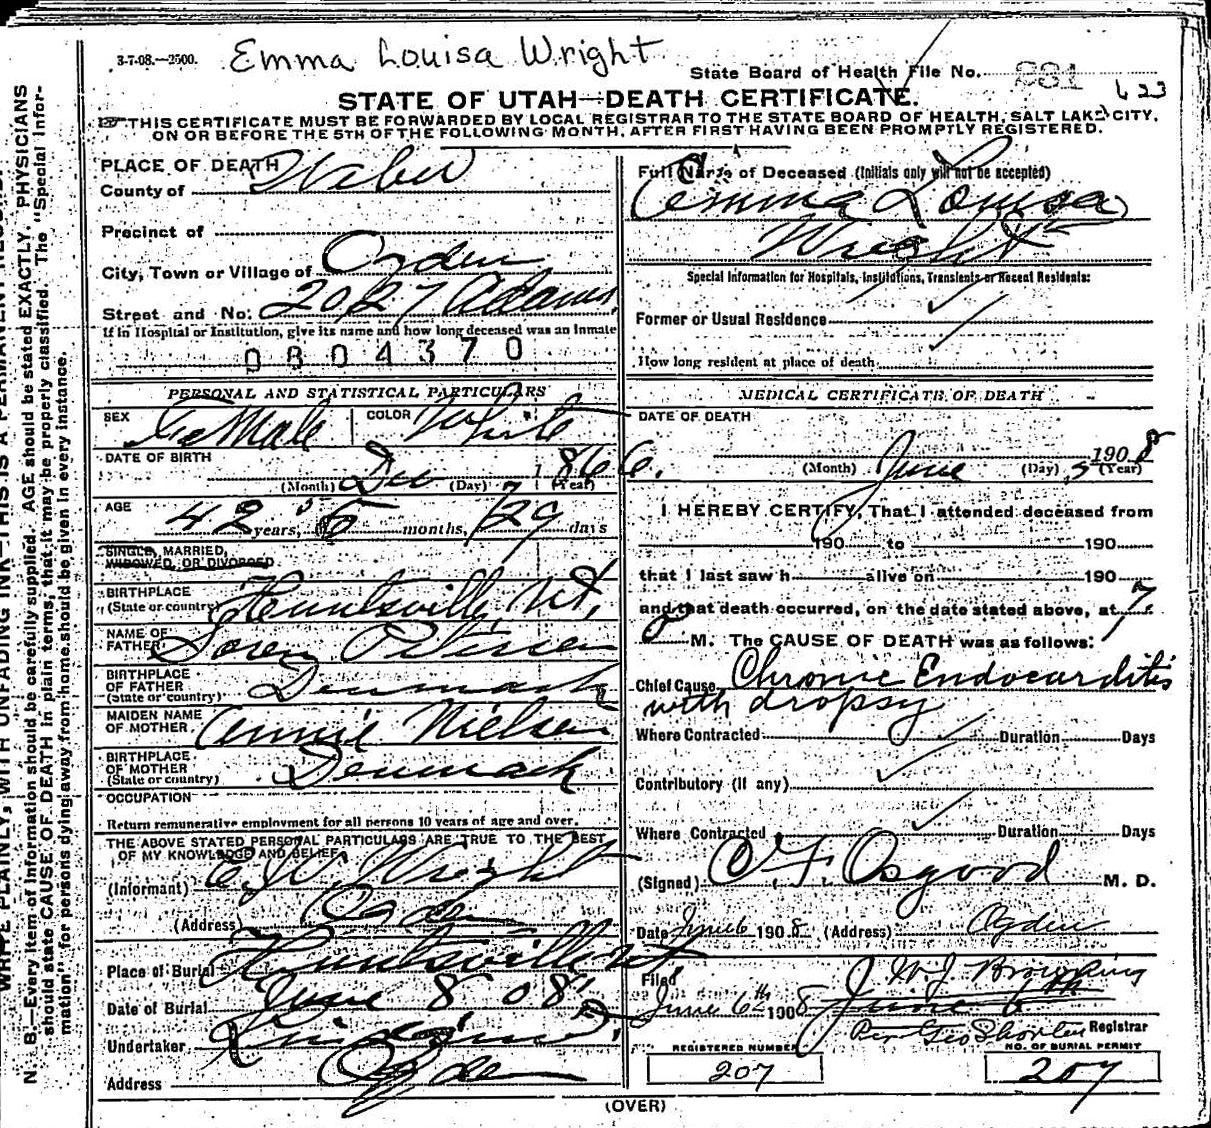 3-7-08.—2500.
Emma Louisa Wright
State Board of Health File No. 281
623
STATE OF UTAH—DEATH CERTIFICATE.
THIS CERTIFICATE MUST BE FORWARDED BY LOCAL REGISTRAR TO THE STATE BOARD OF HEALTH, SALT LAKE CITY,
ON OR BEFORE THE 5TH OF THE FOLLOWING MONTH, AFTER FIRST HAVING BEEN PROMPTLY REGISTERED.
PLACE OF DEATH
County of Weber
Precinct of
City, Town or Village of Ogden
Street and No. 2027 Adams
If in Hospital or Institution, give its name and how long deceased was an inmate
0804370
PERSONAL AND STATISTICAL PARTICULARS
SEX Female COLOR White
DATE OF BIRTH
(Month) Dec (Day) 7 1866. (Year)
AGE
42 years, 5 months, 29 days
SINGLE, MARRIED,
WIDOWED, OR DIVORCED
BIRTHPLACE
(State or country) Huntsville, Ut.
NAME OF
FATHER Soren Petersen
BIRTHPLACE
OF FATHER
(State or country) Denmark
MAIDEN NAME
OF MOTHER Annie Nielsen
BIRTHPLACE
OF MOTHER
(State or country) Denmark
OCCUPATION
Return remunerative employment for all persons 10 years of age and over.
THE ABOVE STATED PERSONAL PARTICULARS ARE TRUE TO THE BEST
OF MY KNOWLEDGE AND BELIEF
(Informant) E. W. Wright
(Address) Ogden
Place of Burial Huntsville Ut
Date of Burial June 8 08
Undertaker
Address Ogden
Full Name of Deceased (Initials only will not be accepted)
Emma Louisa
Wright
Special Information for Hospitals, Institutions, Transients or Recent Residents:
Former or Usual Residence
How long resident at place of death
MEDICAL CERTIFICATE OF DEATH
DATE OF DEATH
(Month) June (Day) 5 1908 (Year)
I HEREBY CERTIFY, That I attended deceased from
190 to 190
that I last saw h alive on 190
and that death occurred, on the date stated above, at 7
P M. The CAUSE OF DEATH was as follows:
Chief Cause Chronic Endocarditis
with dropsy
Where Contracted Duration Days
Contributory (if any)
Where Contracted Duration Days
(Signed) O. F. Osgood M. D.
Date June 6 1908 (Address) Ogden
Filed J W J Browning
June 6th 1908 June 6th
Per Geo Shorten Registrar
REGISTERED NUMBER
207
NO. OF BURIAL PERMIT
207
(OVER)
WRITE PLAINLY, WITH UNFADING INK—THIS IS A PERMANENT RECORD.
N. B.—Every item of information should be carefully supplied. AGE should be stated EXACTLY. PHYSICIANS
should state CAUSE OF DEATH in plain terms, that it may be properly classified. The "Special Infor-
mation" for persons dying away from home should be given in every instance.